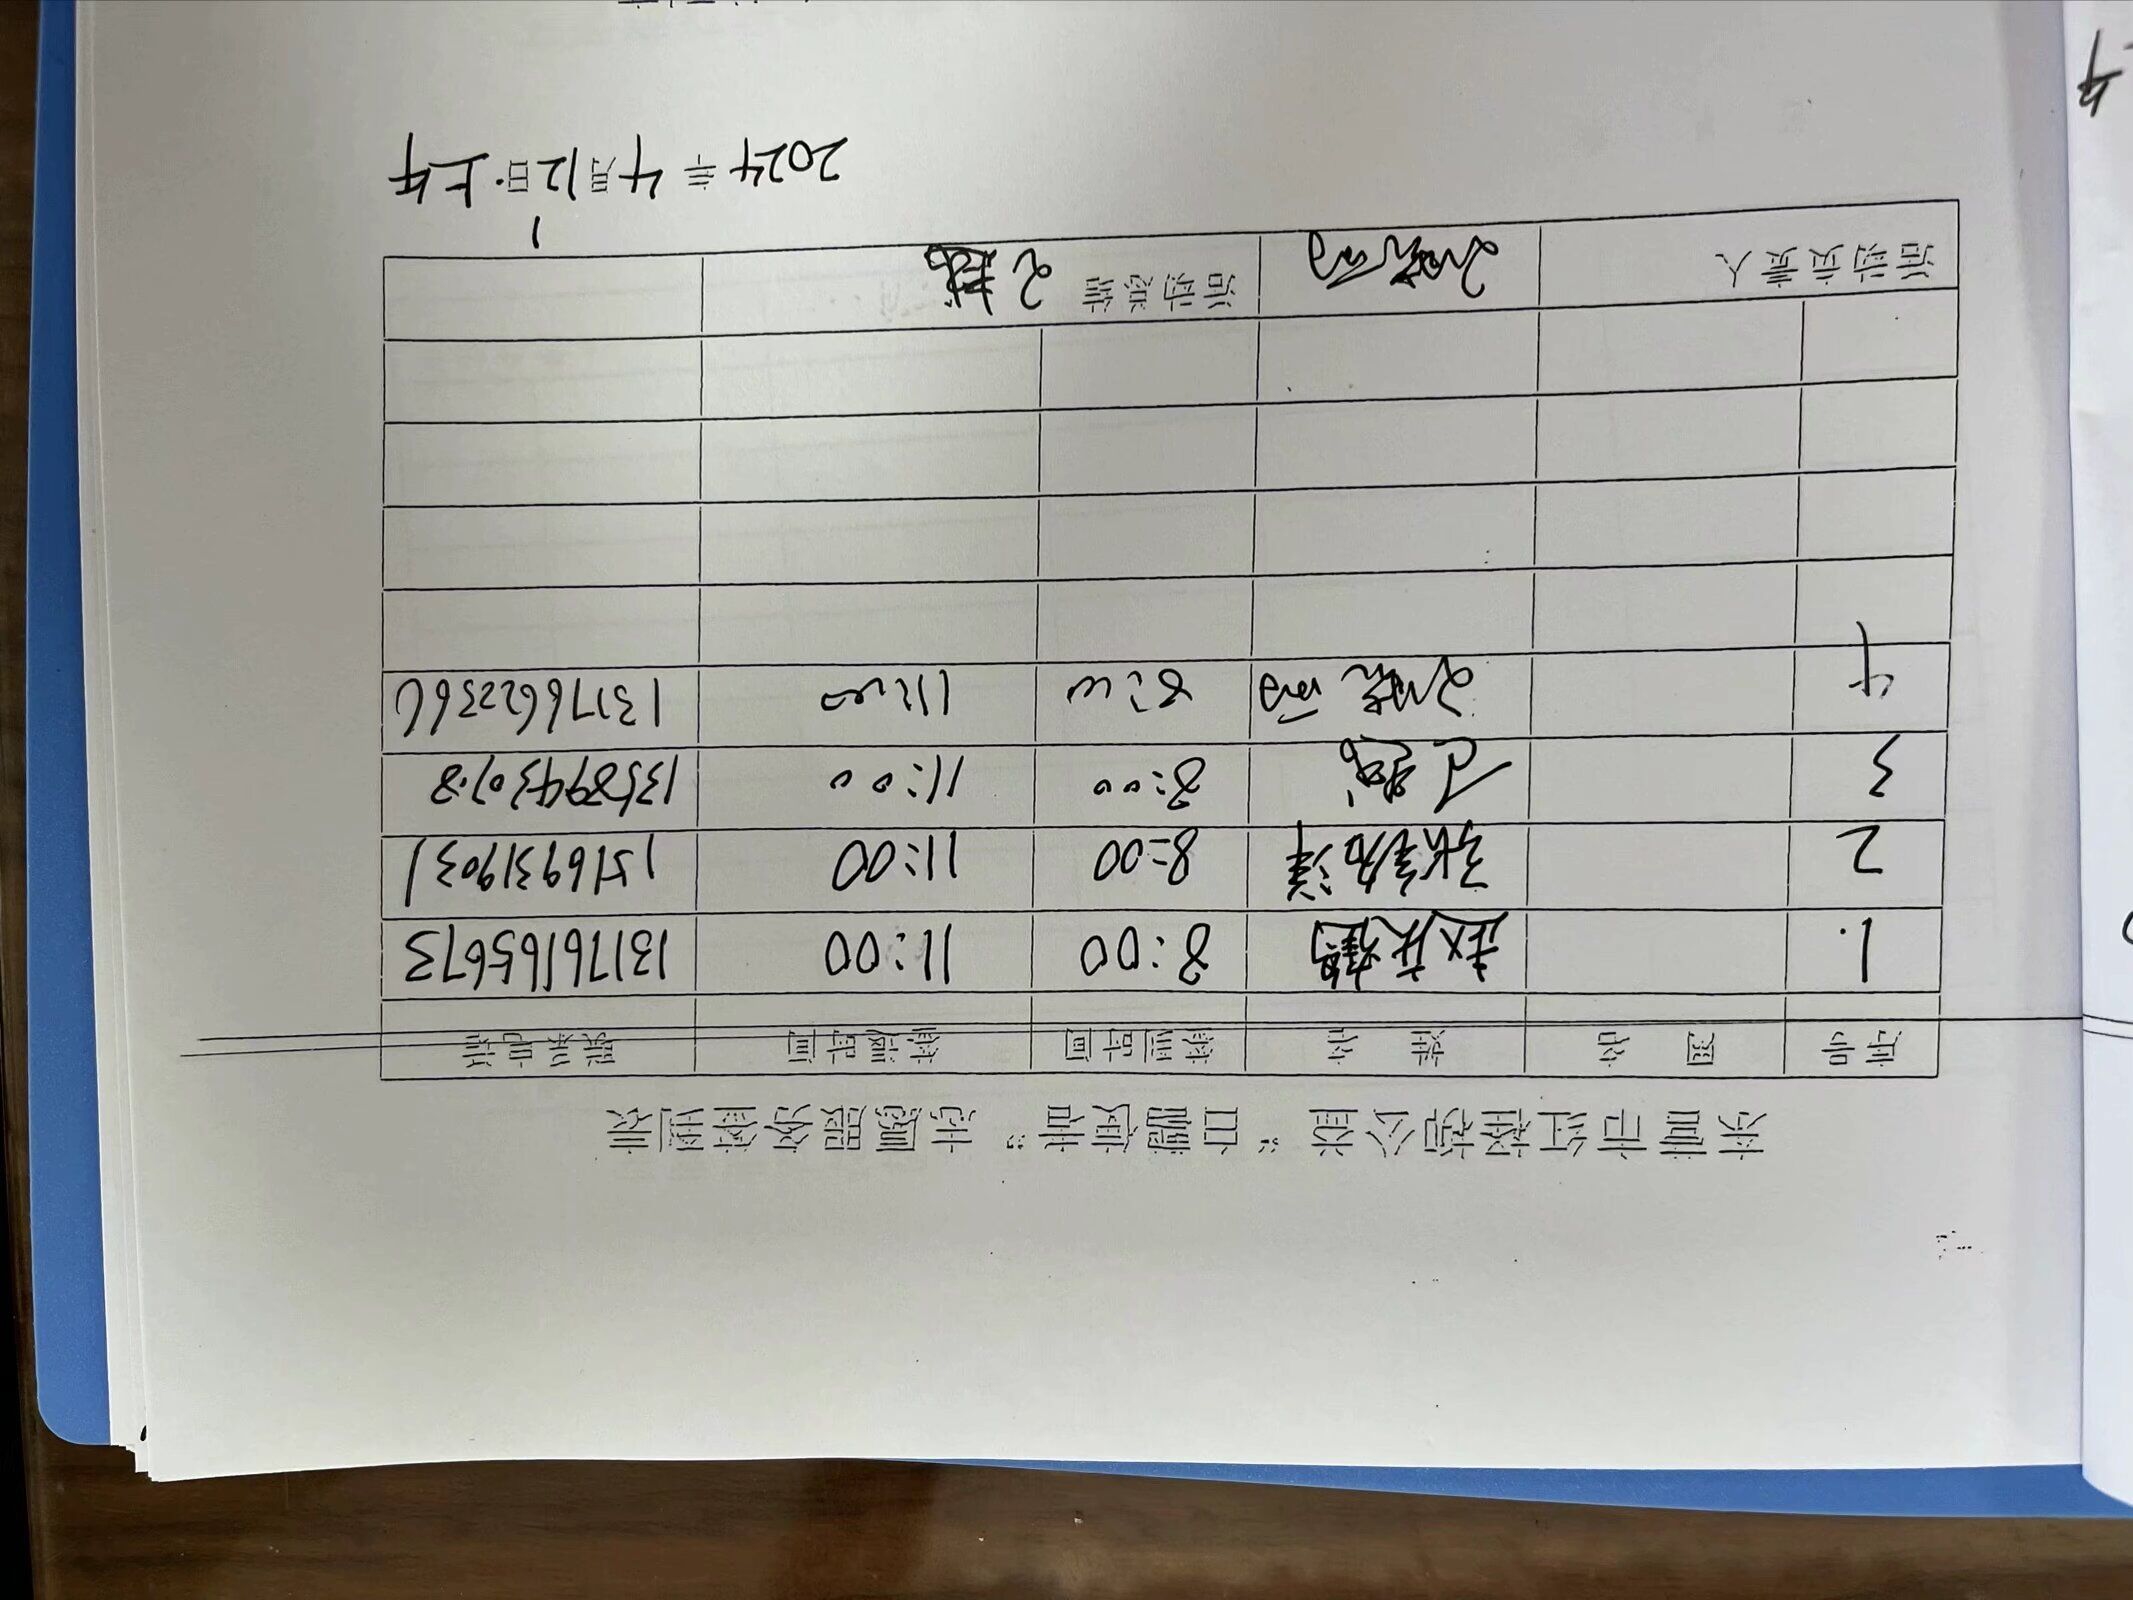 东营市红柽柳公益“白鹭使者”志愿服务签到表
序号 网 名 姓 名 签到时间 签退时间 联系电话
1. 8:00 11:00 13176165673
2 8:00 11:00 15169319031
3 8:00 11:00
4 8:00 11:00
活动负责人 活动总结
2024年4月12日·上午